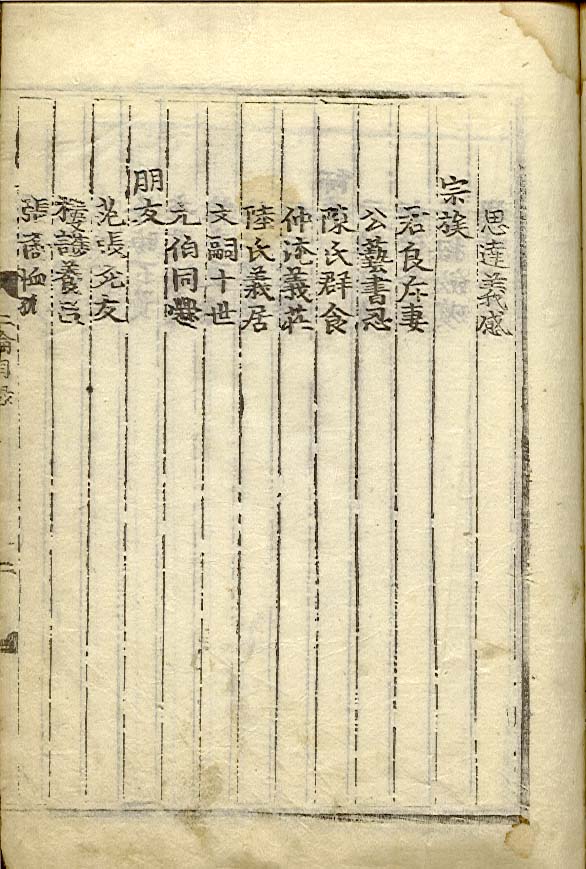 思達義感
宗族
君良斥妻
公藝書忍
陳氏群食
仲淹義莊
陸氏義居
文嗣十世
元伯同爨
朋友
范張死友
樓護養呂
張裔恤孤
二倫目錄
二